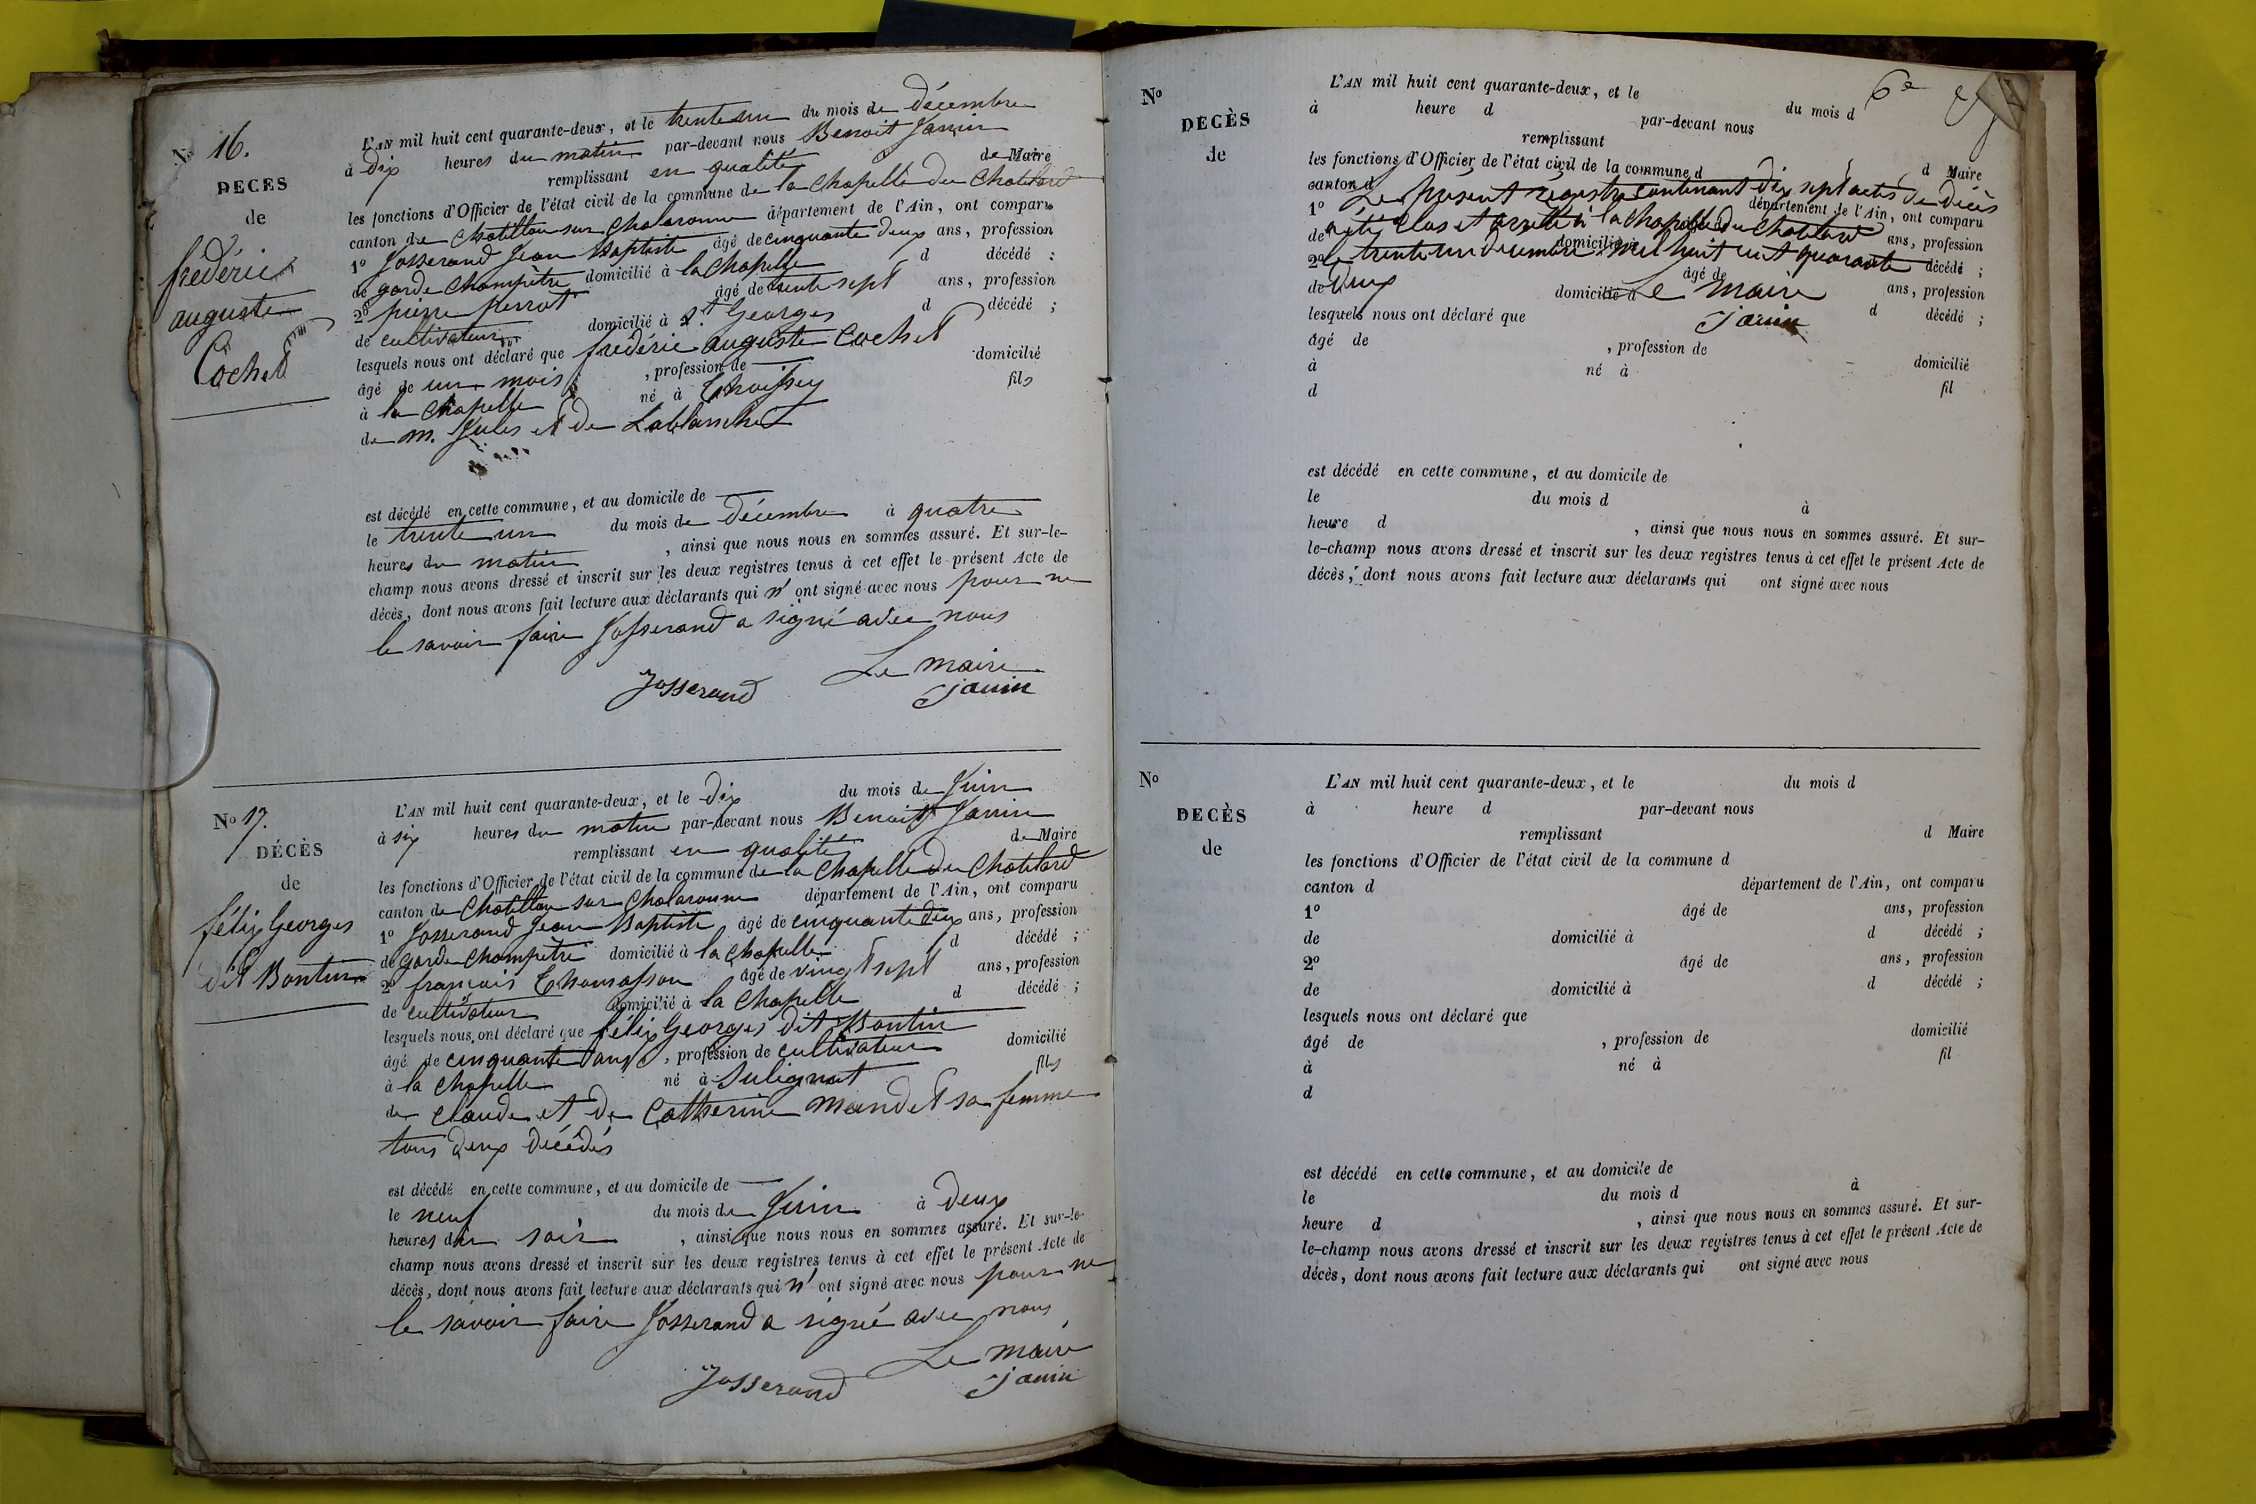 No 16.
DECES
de
frédéric
auguste
Cochet
L'AN mil huit cent quarante-deux, et le trente un du mois de décembre
à dix heures du matin par-devant nous Benoit Janin
remplissant en qualité de Maire
les fonctions d'Officier de l'état civil de la commune de la Chapelle du Chatelard
canton de Chatillon sur Chalaronne département de l'Ain, ont comparu
1o Josserand Jean Baptiste âgé de cinquante deux ans, profession
de garde Champêtre domicilié à la Chapelle d décédé ;
2o pierre perrot âgé de trente sept ans, profession
de cultivateur domicilié à St. Georges d décédé ;
lesquels nous ont déclaré que frédéric auguste Cochet
âgé de un mois , profession de domicilié
à la Chapelle né à Thoissey fils
de m. Jules et de Lablanche
est décédé en cette commune, et au domicile de
le trente un du mois de Décembre à quatre
heures du matin , ainsi que nous nous en sommes assuré. Et sur-le-
champ nous avons dressé et inscrit sur les deux registres tenus à cet effet le présent Acte de
décès, dont nous avons fait lecture aux déclarants qui n' ont signé avec nous pour ne
le savoir faire Josserand a signé avec nous
Le maire
Josserand Janin
No 17.
DÉCÈS
de
félix Georges
dit Bontin
L'AN mil huit cent quarante-deux, et le Dix du mois de Juin
à six heures du matin par-devant nous Benoit Janin
remplissant en qualité de Maire
les fonctions d'Officier de l'état civil de la commune de la Chapelle du Chatelard
canton de Chatillon sur Chalaronne département de l'Ain, ont comparu
1o Josserand Jean Baptiste âgé de cinquante deux ans, profession
de garde Champêtre domicilié à la Chapelle d décédé ;
2o françois Thomasson âgé de vingt sept ans, profession
de cultivateur domicilié à la Chapelle d décédé ;
lesquels nous ont déclaré que félix Georges dit Bontin
âgé de cinquante ans , profession de cultivateur domicilié
à la Chapelle né à Sulignat fils
de claude et de Catherine mandet sa femme
tous deux décédés
est décédé en cette commune, et au domicile de
le neuf du mois de Juin à deux
heures du soir , ainsi que nous nous en sommes assuré. Et sur-le-
champ nous avons dressé et inscrit sur les deux registres tenus à cet effet le présent Acte de
décès, dont nous avons fait lecture aux déclarants qui n' ont signé avec nous pour ne
le savoir faire Josserand a signé avec nous
Le maire
Josserand Janin
No
DECÈS
de
L'AN mil huit cent quarante-deux, et le du mois d
à heure d par-devant nous
remplissant d Maire
les fonctions d'Officier de l'état civil de la commune d
canton d département de l'Ain, ont comparu
Le présent registre contenant dix sept actes de décès
1o ans, profession
de été clos et arrêté à la Chapelle du Chatelard
domicilié à décédé ;
2o le trente un décembre mil huit cent quarante
âgé de ans, profession
de deux domicilié à d décédé ;
Le maire
Janin
lesquels nous ont déclaré que
âgé de , profession de domicilié
à né à fil
d
est décédé en cette commune, et au domicile de
le du mois d à
heure d , ainsi que nous nous en sommes assuré. Et sur-
le-champ nous avons dressé et inscrit sur les deux registres tenus à cet effet le présent Acte de
décès, dont nous avons fait lecture aux déclarants qui ont signé avec nous
No
DECÈS
de
L'AN mil huit cent quarante-deux, et le du mois d
à heure d par-devant nous
remplissant d Maire
les fonctions d'Officier de l'état civil de la commune d
canton d département de l'Ain, ont comparu
1o âgé de ans, profession
de domicilié à d décédé ;
2o âgé de ans, profession
de domicilié à d décédé ;
lesquels nous ont déclaré que
âgé de , profession de domicilié
à né à fil
d
est décédé en cette commune, et au domicile de
le du mois d à
heure d , ainsi que nous nous en sommes assuré. Et sur-
le-champ nous avons dressé et inscrit sur les deux registres tenus à cet effet le présent Acte de
décès, dont nous avons fait lecture aux déclarants qui ont signé avec nous